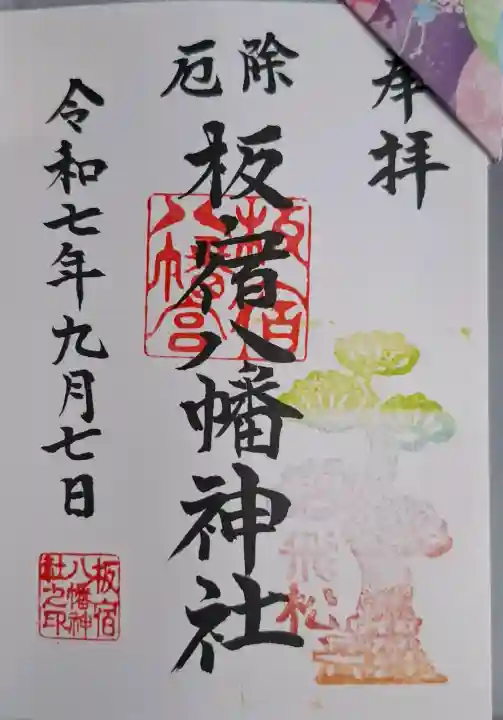 奉拝
厄除
板宿八幡神社
板宿
八幡宮
飛松
令和七年九月七日
板宿
八幡神
社之印